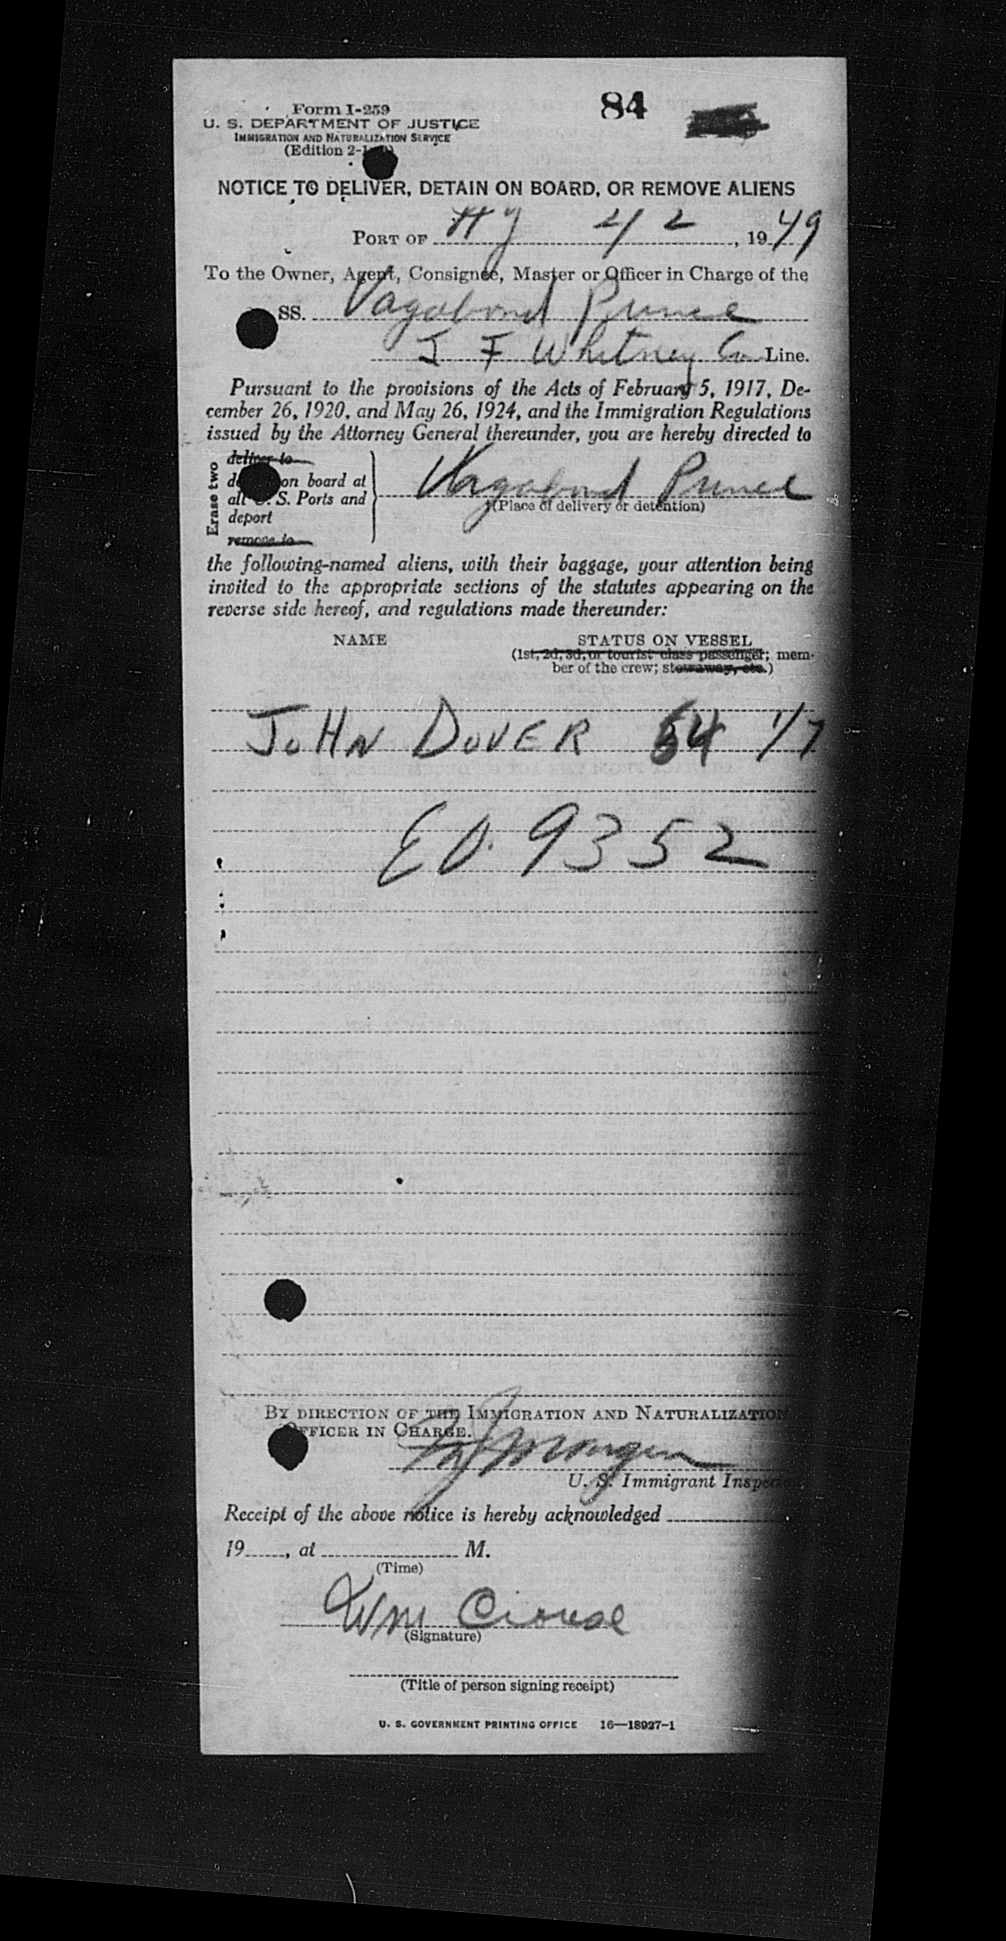 84
Form I-259
U. S. DEPARTMENT OF JUSTICE
IMMIGRATION AND NATURALIZATION SERVICE
(Edition 2-1
NOTICE TO DELIVER, DETAIN ON BOARD, OR REMOVE ALIENS
PORT OF NY 4/2, 1949
To the Owner, Agent, Consignee, Master or Officer in Charge of the
SS. Vagabond Prince
J F Whitney Co Line.
Pursuant to the provisions of the Acts of February 5, 1917, De-
cember 26, 1920, and May 26, 1924, and the Immigration Regulations
issued by the Attorney General thereunder, you are hereby directed to
Erase two
deliver to
on board at
all S. Ports and
deport
remove to
Vagabond Prince
(Place of delivery or detention)
the following-named aliens, with their baggage, your attention being
invited to the appropriate sections of the statutes appearing on the
reverse side hereof, and regulations made thereunder:
NAME
STATUS ON VESSEL
(1st, 2d, 3d, or tourist class passenger; mem-
ber of the crew; stowaway, etc.)
JOHN DOVER 54 1/7
EO. 9352
BY DIRECTION OF THE IMMIGRATION AND NATURALIZATION
OFFICER IN CHARGE.
U. S. Immigrant Inspe
Receipt of the above notice is hereby acknowledged
19, at M.
(Time)
Wm
(Signature)
(Title of person signing receipt)
U. S. GOVERNMENT PRINTING OFFICE 16—18927-1